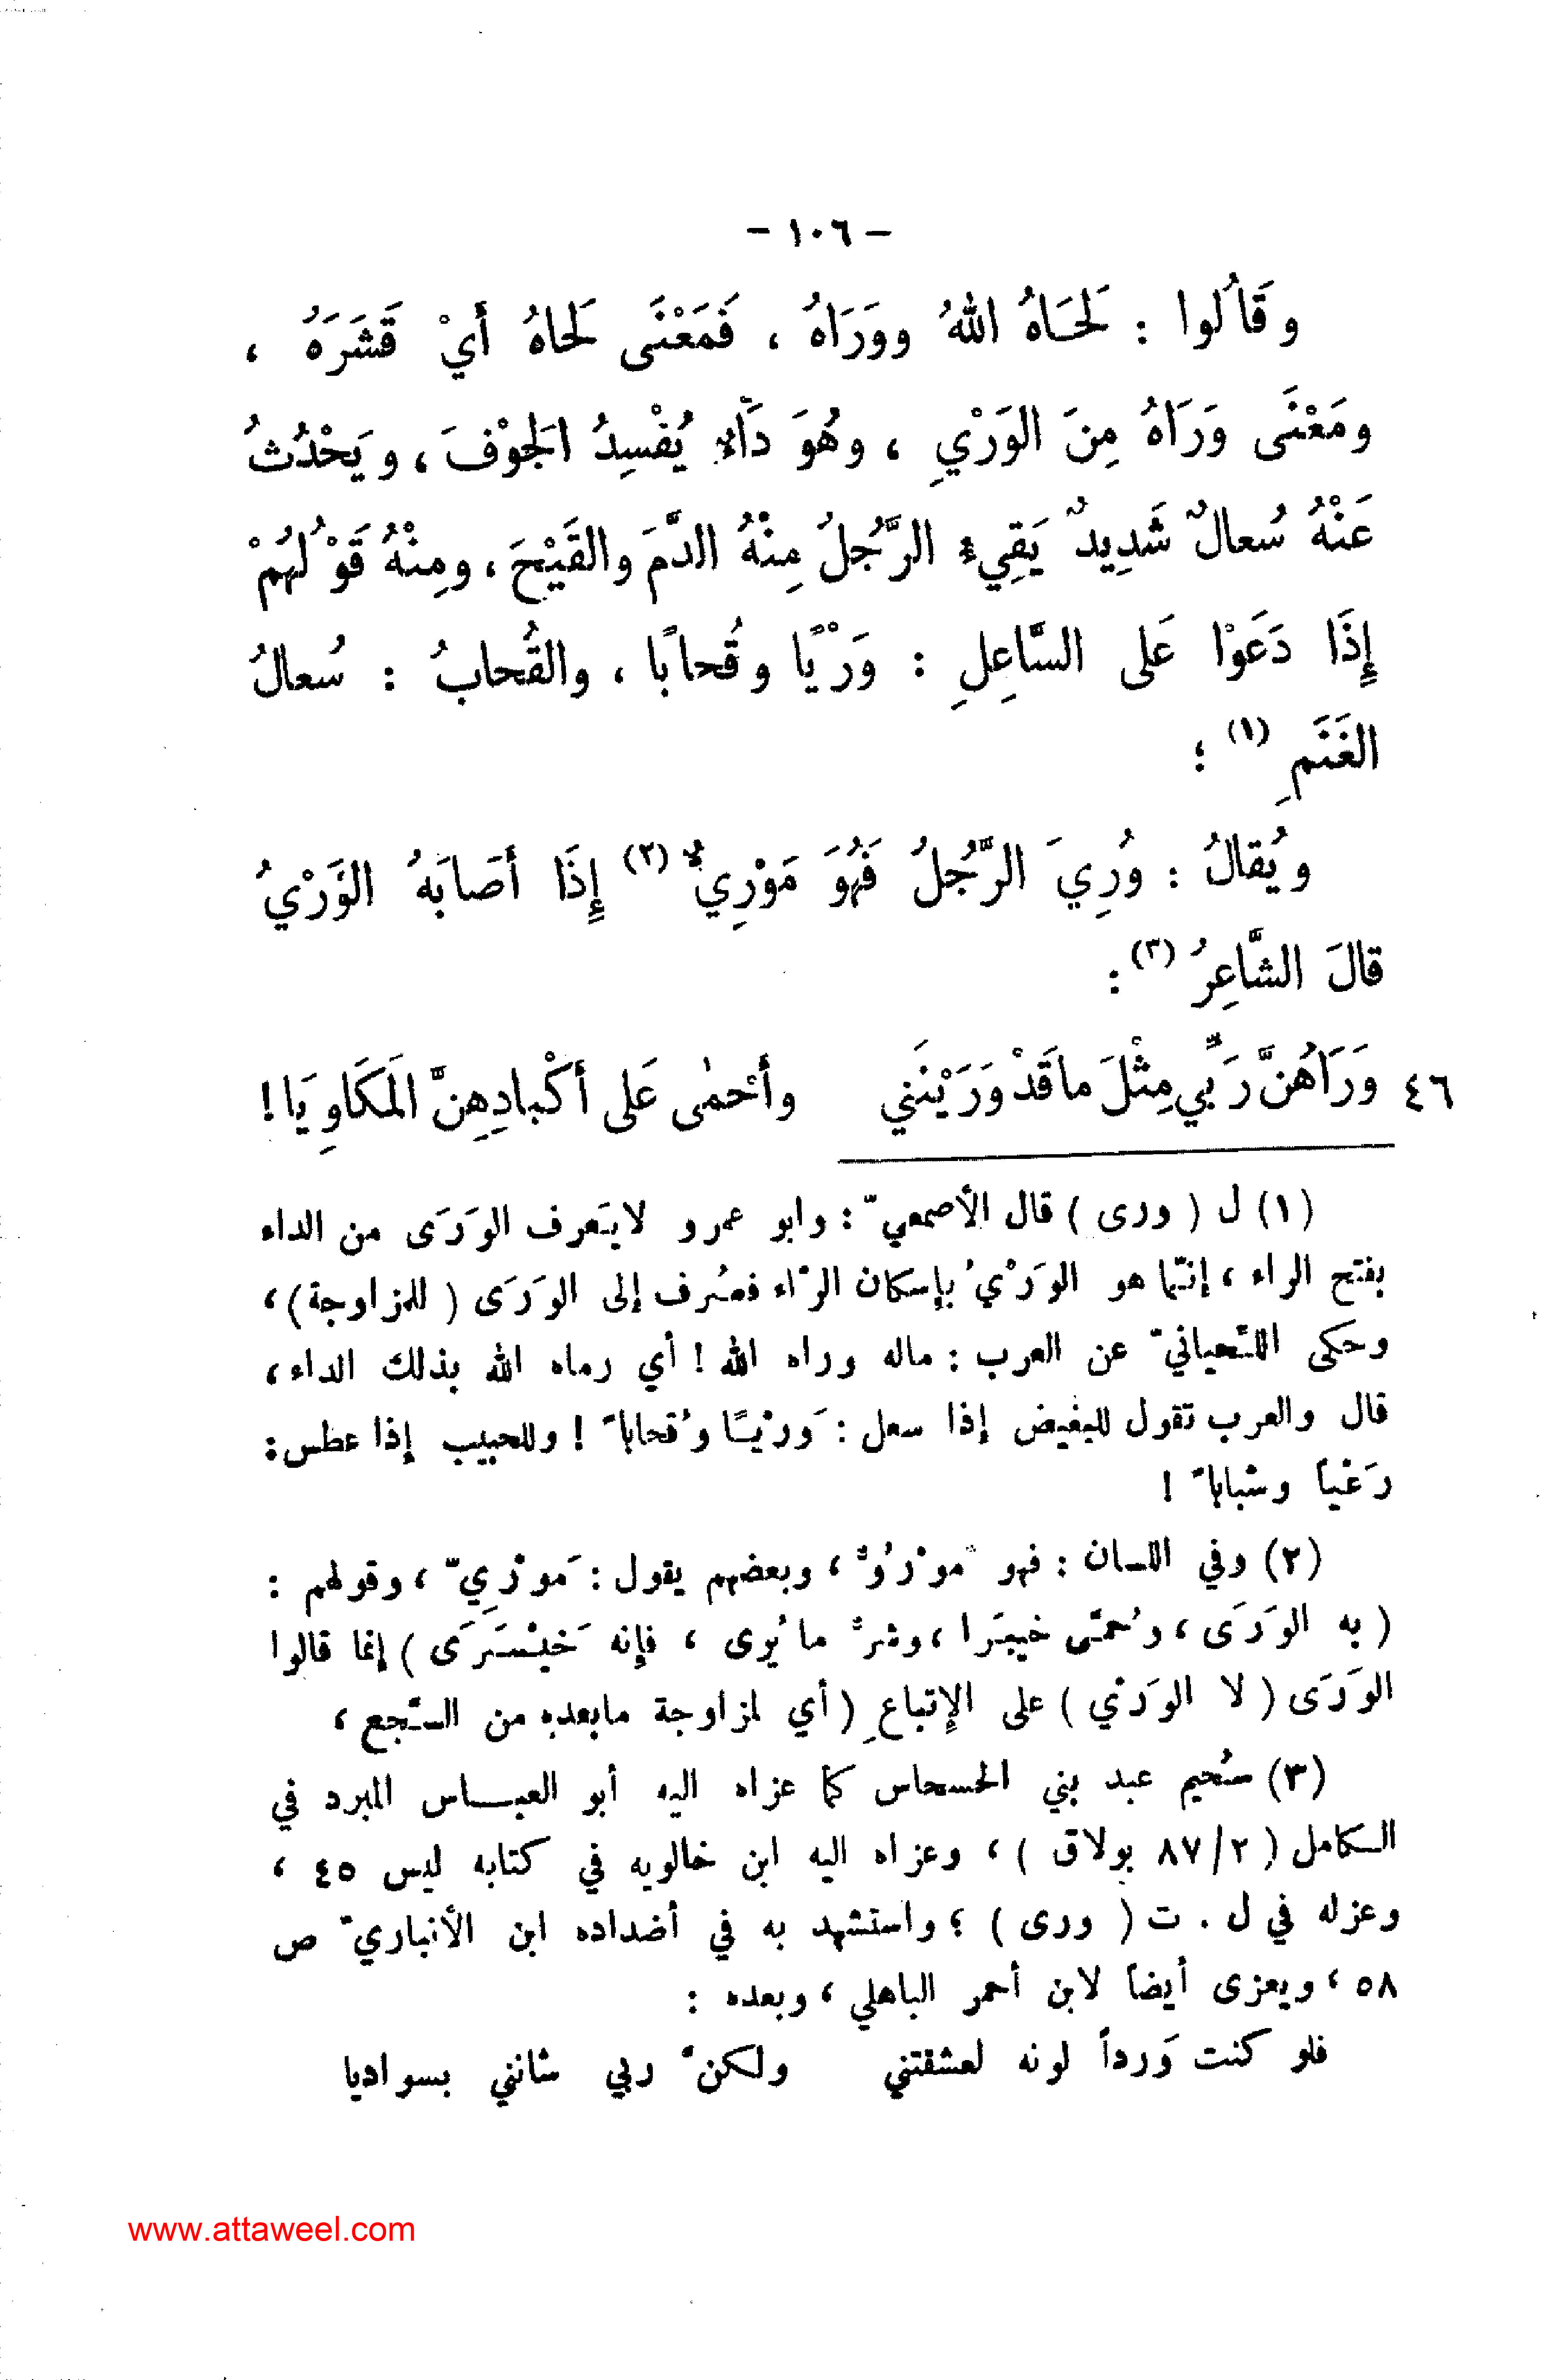 - ١٠٦ -
وَقَالُوا : لَحَاهُ اللهُ وورَاهُ ، فَمَعْنَى لَحاهُ أَيْ قَشَرَهُ ،
ومَعْنَى وَرَاهُ مِنَ الوَرْيِ ، وهُوَ دَاءٌ يُفْسِدُ الجَوْفَ ، ويَحْدُثُ
عَنْهُ سُعالٌ شَدِيدٌ يَقِيء الرَّجُلُ مِنْهُ الدَّمَ والقَيْحَ ، ومِنْهُ قَوْلُهُمْ
إِذَا دَعَوْا عَلى السَّاعِلِ : وَرْيًا وقُحابًا ، والقُحابُ : سُعالُ
الغَنَمِ (١) ؛
ويُقالُ : وُرِيَ الرَّجُلُ فَهُوَ مَوْرِيٌّ (٢) إِذَا أَصَابَهُ الوَرْيُ
قالَ الشَّاعِرُ (٣) :
٤٦ وَرَاهُنَّ رَبِّي مِثْلَ ماقَدْ وَرَيْنَنِي وأَحْمٰى عَلى أَكْبادِهِنَّ المَكَاوِيَا !
(١) ل ( ورى ) قال الأصمعيّ : وابو عمرو لايَعرف الوَرَى من الداء
بفتح الراء ، إنّما هو الوَرْيُ بإسكان الرّاء فصُرف إلى الوَرَى ( للمزاوجة ) ،
وحكى اللّحيانيّ عن العرب : ماله وراه الله ! أي رماه الله بذلك الداء ،
قال والعرب تقول للبغيض إذا سعل : وَرْيًا وقُحاباً ! وللحبيب إذا عطس :
رَعْياً وشباباً !
(٢) وفي اللسان : فهو مَوْرُوٌّ ، وبعضهم يقول : مَوْرِيّ ، وقولهم :
( به الوَرَى ، وحُمّى خيبَرا ، وشرّ ما يُرى ، فإنه خَيْسَرَى ) إنما قالوا
الوَرَى ( لا الوَرْي ) على الإتباعِ ( أي لمزاوجة مابعده من السّجع ،
(٣) سُحيم عبد بني الحسحاس كما عزاه اليه أبو العباس المبرد في
الكامل ( ٨٧/٢ بولاق ) ، وعزاه اليه ابن خالويه في كتابه ليس ٤٥ ،
وعزله في ل . ت ( ورى ) ؛ واستشهد به في أضداده ابن الأنباريّ ص
٥٨ ، ويعزى أيضاً لابن أحمر الباهلي ، وبعده :
فلو كنت وَرداً لونه لعشقتني ولكنّ ربي شانني بسواديا
www.attaweel.com